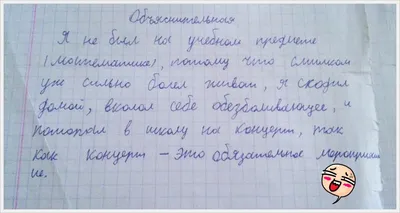 Объяснительная
Я не был на учебном предмете
(математика), потому что слишком
уж сильно болел живот, я сходил
домой, вколол себе обезболивающее, и
попопрыл в школу на концерт, так
как концерт – это обязательное мероприят
ие.